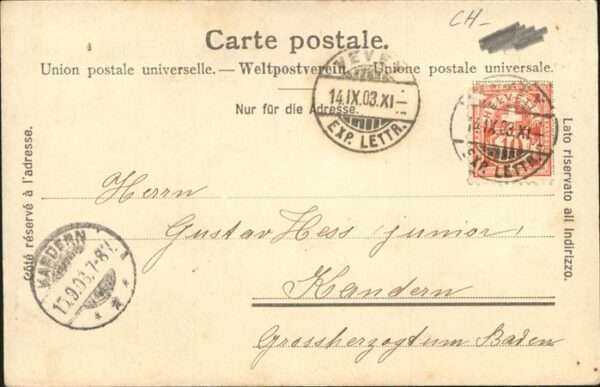 CH-
Carte postale.
Union postale universelle. — Weltpostverein. — Unione postale universale.
Nur für die Adresse.
VEVEY
14.IX.03.XI-
EXP. LETTR.
VEVEY
14.IX.03.XI-
EXP. LETTR.
10
Côté réservé à l'adresse.
Lato riservato all indirizzo.
Herrn
Gustav Hess junior
Kandern
Grossherzogtum Baden
KANDERN
15.9.03.7-8V.